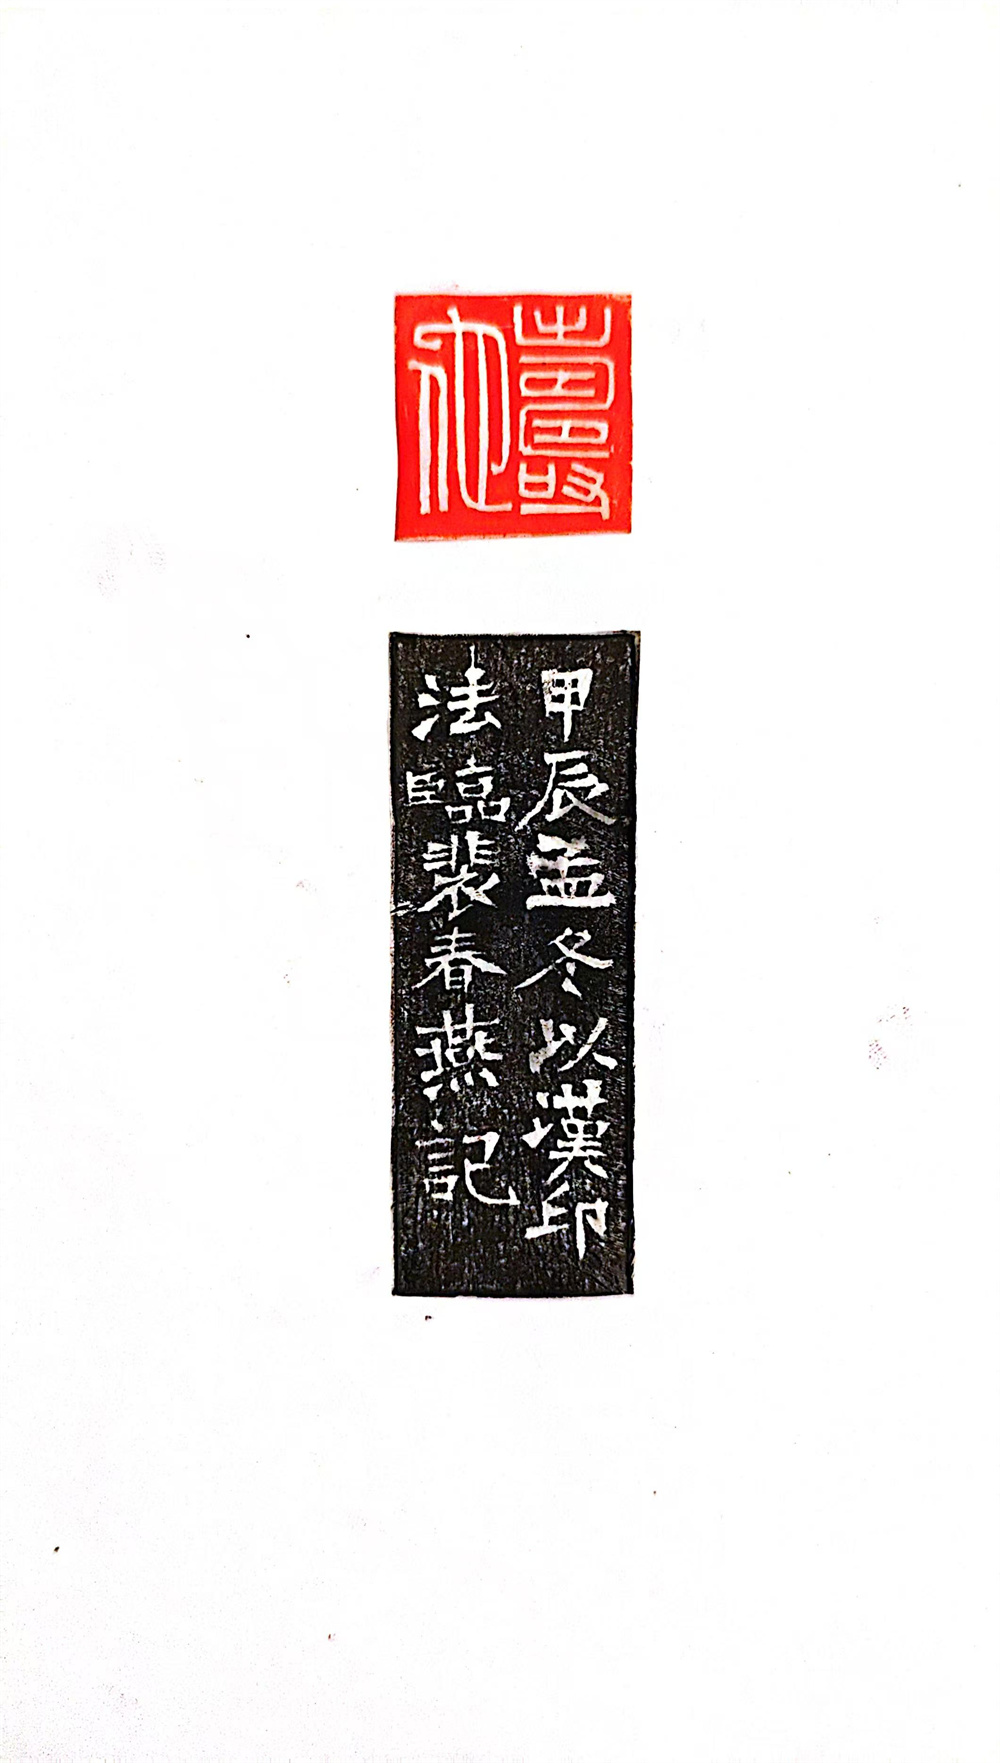 壽
甲辰孟冬以漢印
法臨裴春燕記